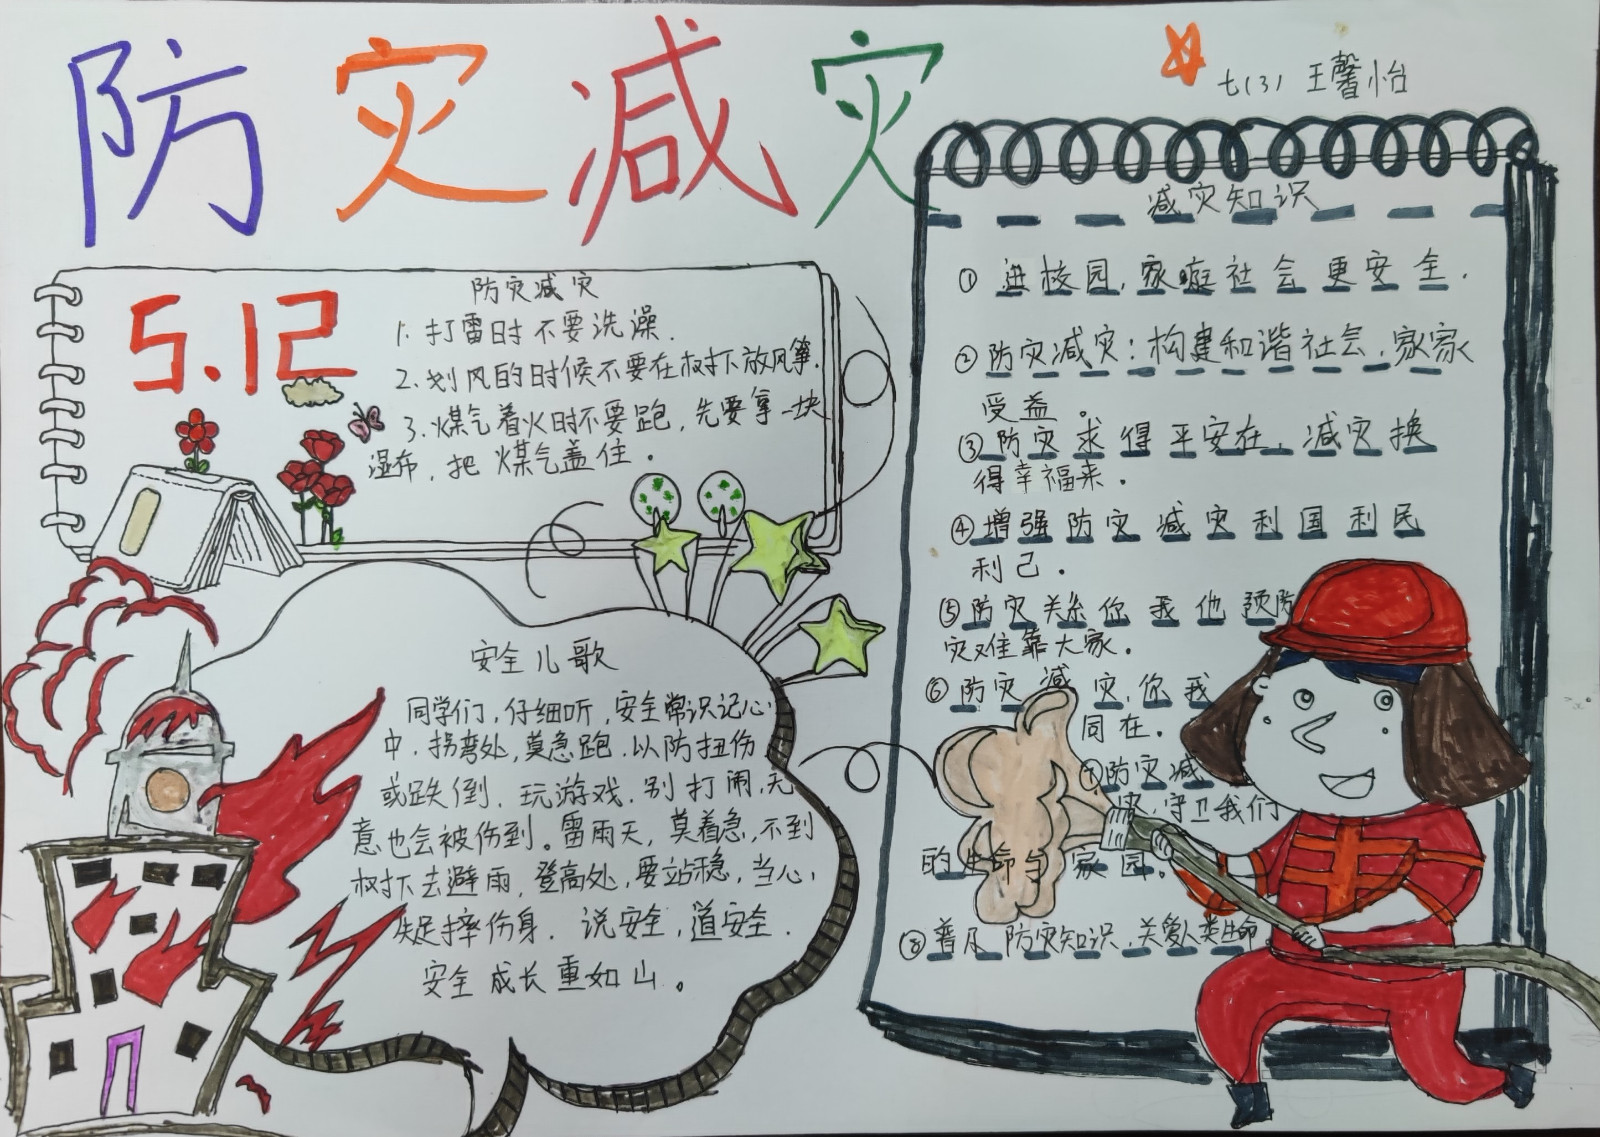 防灾减灾
七(3) 王馨怡
5.12
防灾减灾
1. 打雷时不要洗澡.
2. 刮风的时候不要在树下放风筝.
3. 煤气着火时不要跑，先要拿一块
湿布，把煤气盖住。
安全儿歌
同学们，仔细听，安全常识记心
中，拐弯处，莫急跑，以防扭伤
或跌倒，玩游戏，别打闹，无
意也会被伤到。雷雨天，莫着急，不到
树下去避雨，登高处，要站稳，当心，
失足摔伤身. 说安全，道安全.
安全成长重如山。
减灾知识
① 进校园，家庭社会更安全.
② 防灾减灾：构建和谐社会，家家
受益。
③ 防灾求得平安在，减灾换
得幸福来。
④ 增强防灾减灾利国利民
利己。
⑤ 防灾关系你我他 预防
灾难靠大家.
⑥ 防灾减灾，你我
同在.
⑦ 防灾减
守卫我们
的生命与家园.
⑧ 普及防灾知识，关爱人类生命